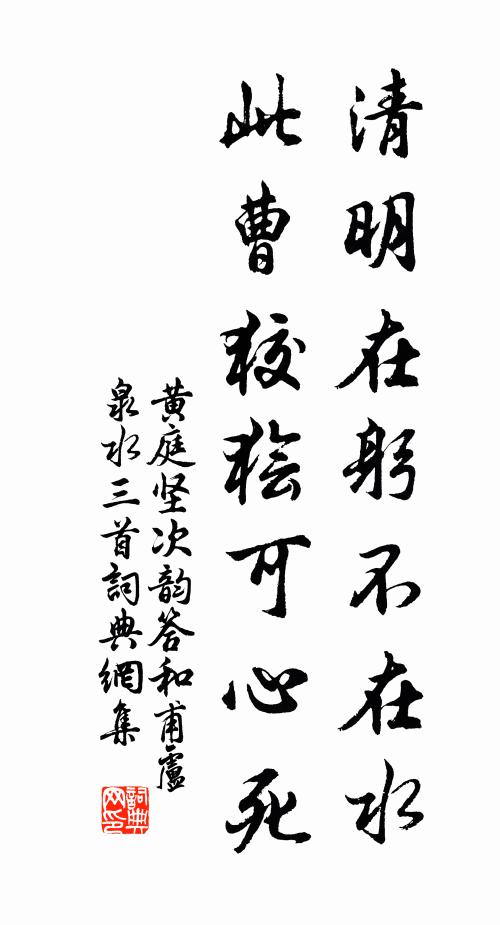 清明在躬不在水
此曹狡狯可心死
黄庭坚次韵答和甫盧
泉水三首詞典網集
詞典
网印